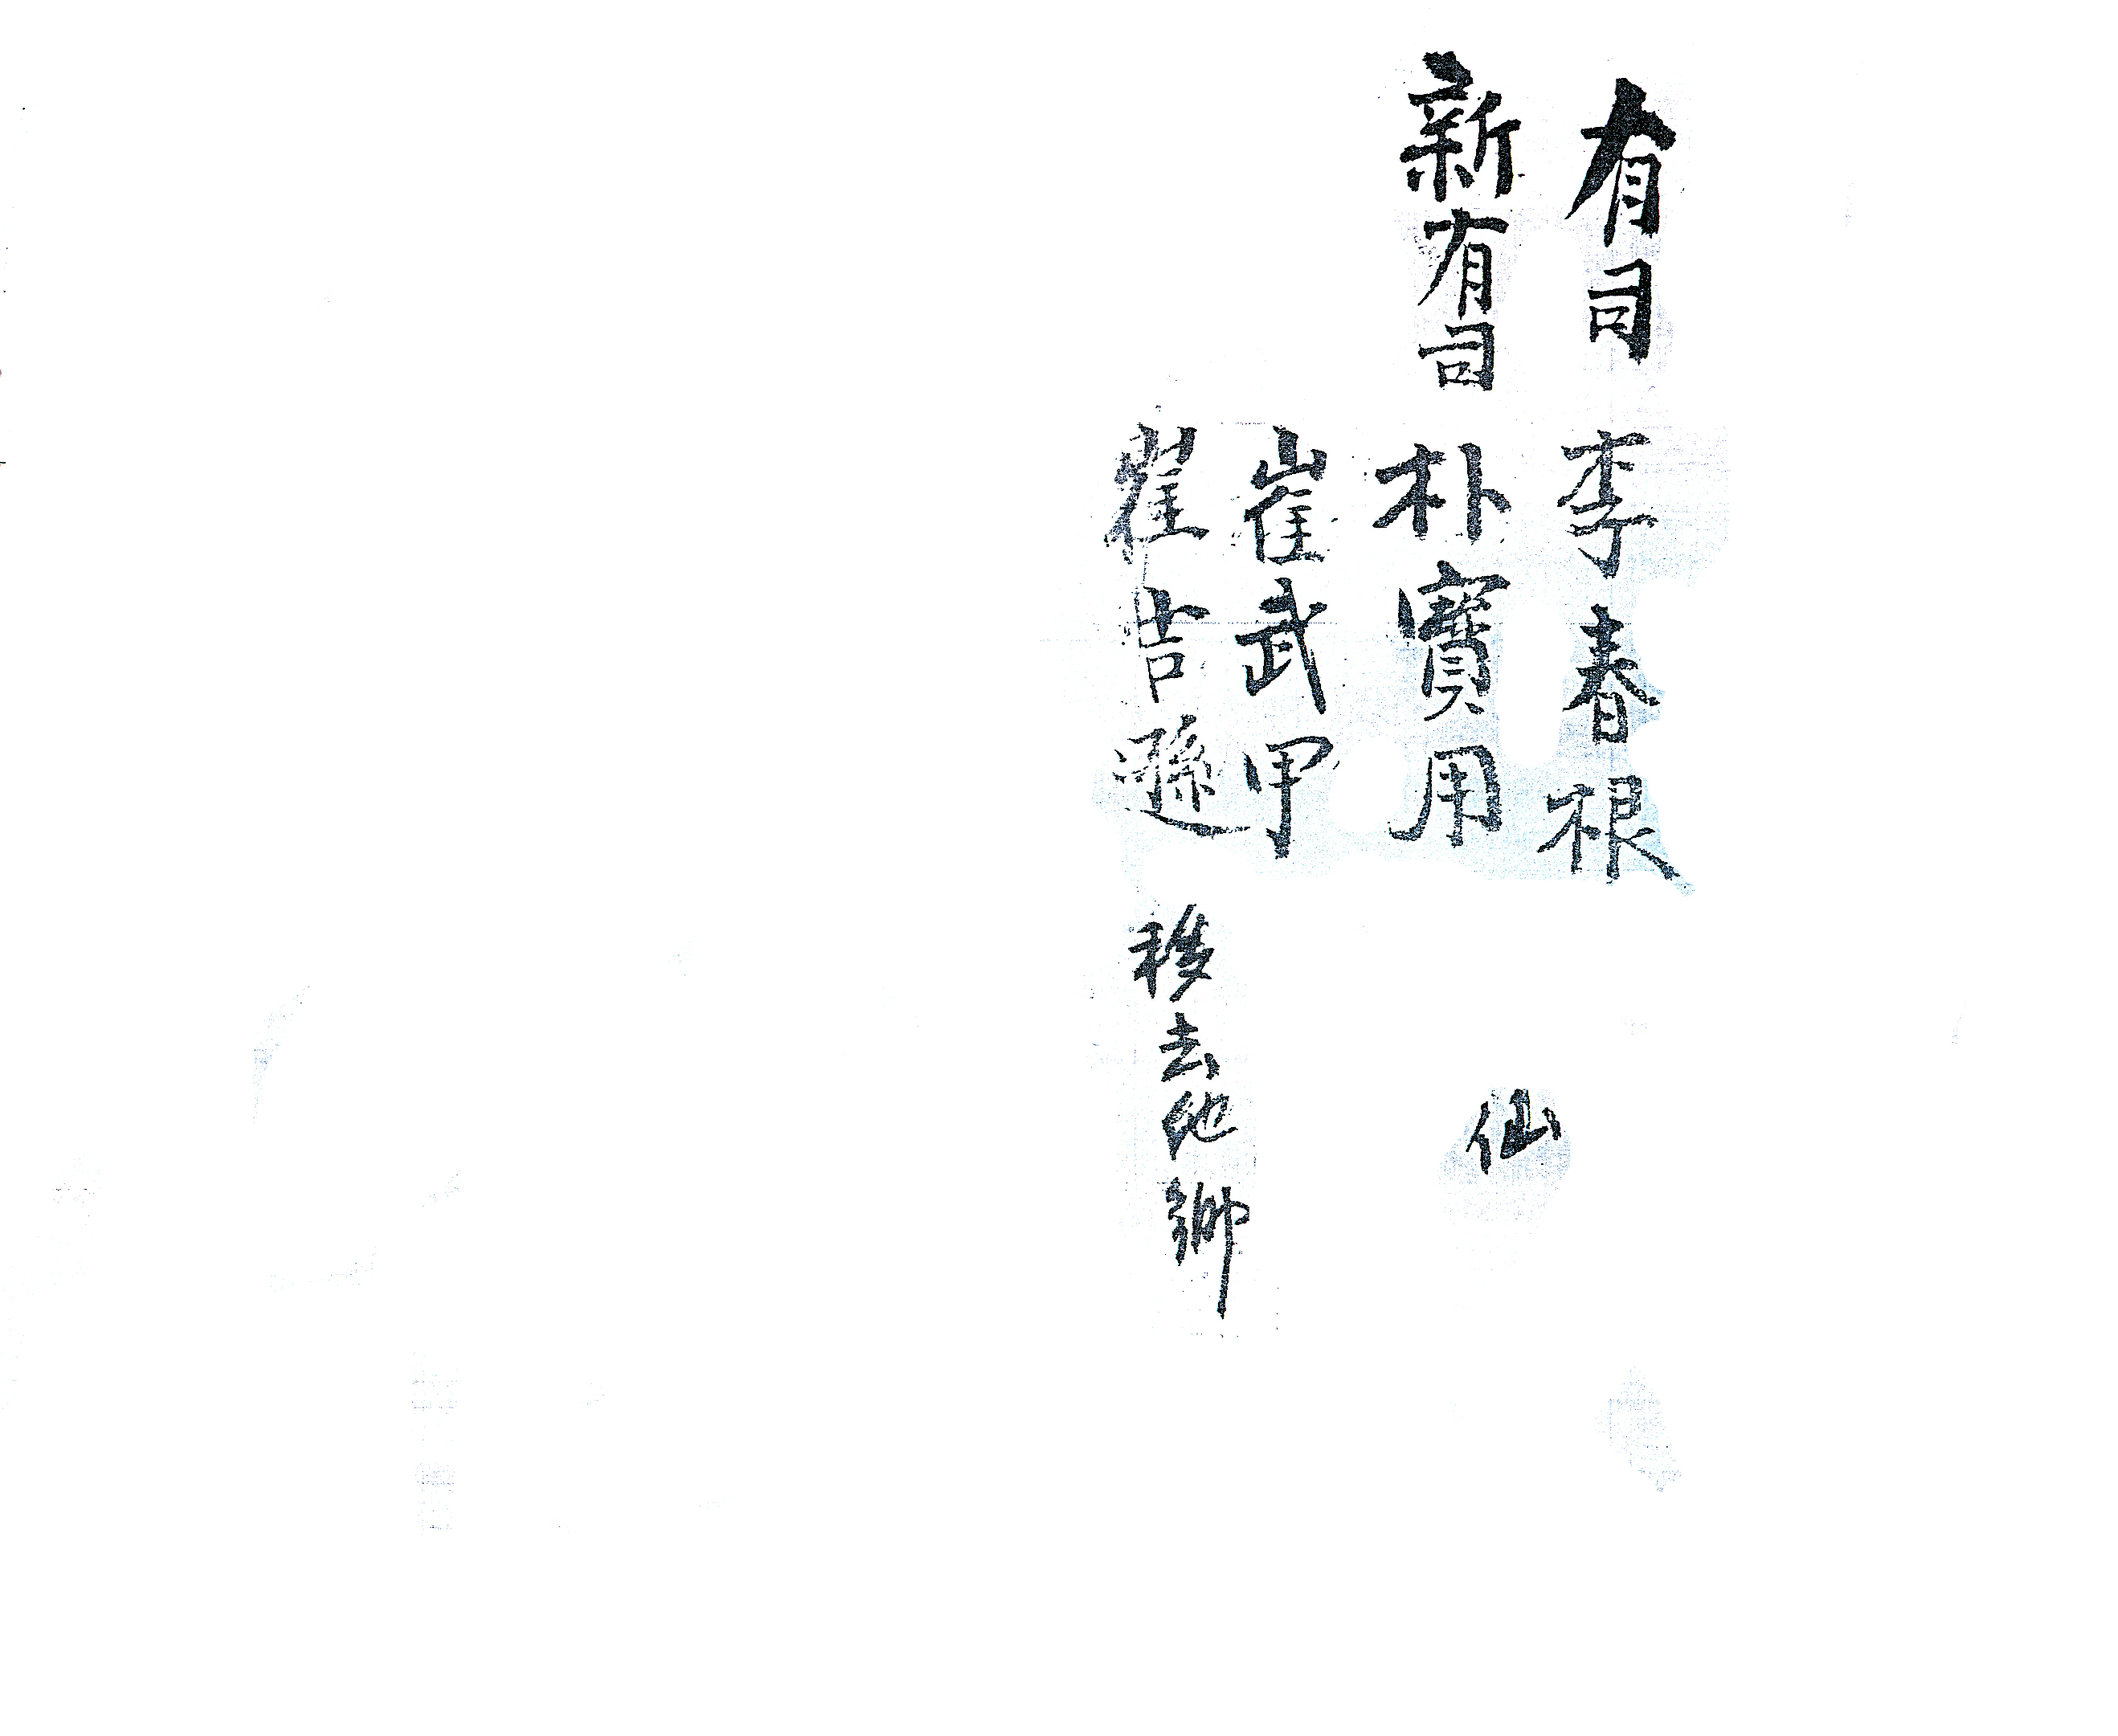 有司 李春根
新有司 朴寶用 仙
崔武甲
崔吉遜 移去他鄉